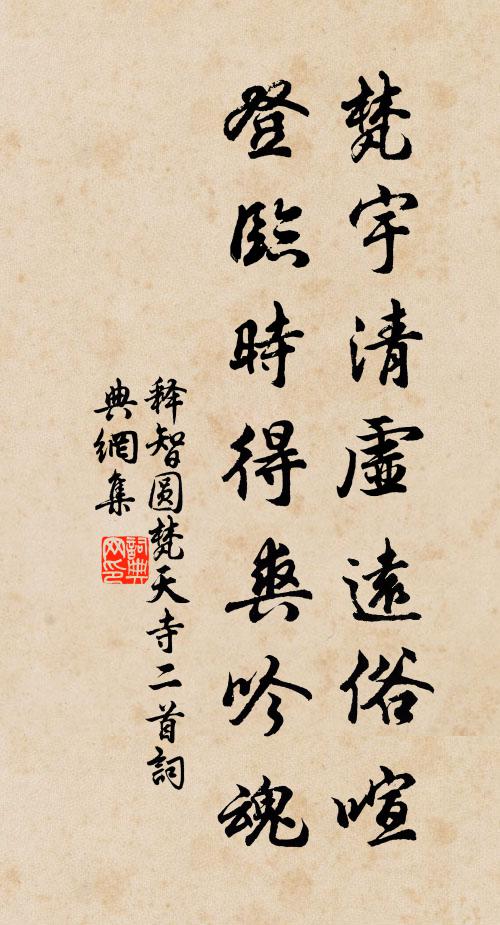 梵宇清虛遠俗喧
登臨時得爽吟魂
释智圓梵天寺二首詞
典網集
詞典
网印